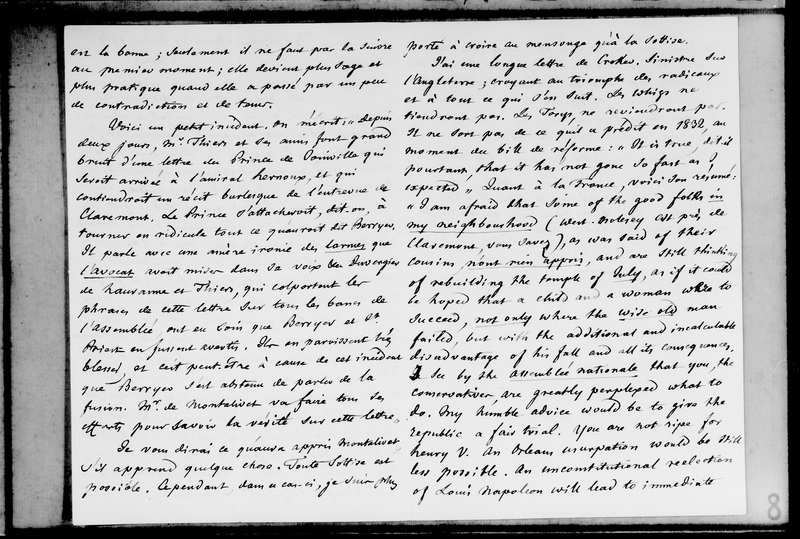 est la bonne ; seulement il ne faut pas la suivre
au premier moment ; elle devient plus sage et
plus pratique quand elle a passé par un peu
de contradiction et de tems.
Voici un petit incident. On m'écrit : « depuis
deux jours, Mr. Thiers et ses amis font grand
bruit d'une lettre du Prince de Joinville qui
seroit arrivée à l'amiral hernoux, et qui
contiendroit un récit burlesque de l'entrevue de
Claremont. Le Prince s'attacheroit, dit-on, à
tourner en ridicule tout ce qu'auroit dit Berryer.
Il parle avec une amère ironie des larmes que
l'avocat avoit mises dans sa voix. Duvergier
de hauranne et Thiers, qui colportent les
phrases de cette lettre sur tous les bancs de
l'assemblée ont eu soin que Berryer et St.
Priest en fussent avertis. Ils en paroissent très
blessés, et c'est peut-être à cause de cet incident
que Berryer s'est abstenu de parler de la
fusion. Mr. de Montalivet va faire tous ses
efforts pour savoir la vérité sur cette lettre.
Je vous dirai ce qu'aura appris Montalivet
s'il apprend quelque chose. Toute sottise est
possible. Cependant, dans ce cas-ci, je suis plus
porté à croire au mensonge qu'à la sottise.
J'ai une longue lettre de Croker. Sinistre sur
l'Angleterre ; croyant au triomphe des radicaux
et à tout ce qui s'en suit. Les Whigs ne
tiendront pas. Les Torys ne reviendront pas.
Il ne sort pas de ce qu'il a prédit en 1832, au
moment du bill de réforme : « It is true, dit-il
pourtant, that it has not gone so fast as I
expected » Quant à la France, voici son résumé :
« I am afraid that some of the good folks in
my neighbourhood (West-Molesey est près de
Claremont, vous savez), as was said of their
cousins, n'ont rien appris, and are still thinking
of rebuilding the temple of July, as if it could
be hoped that a child and a woman were to
succeed, not only where the wise old man
failed, but with the additional and incalculable
disadvantage of his fall and all its consequences.
I see by the assemblée nationale that you, the
conservatives, are greatly perplexed what to
do. My humble advice would be to give the
republic a fair trial. You are not ripe for
henry V. An Orleans usurpation would be still
less possible. An unconstitutional reelection
of Louis Napoleon will lead to immediate
8